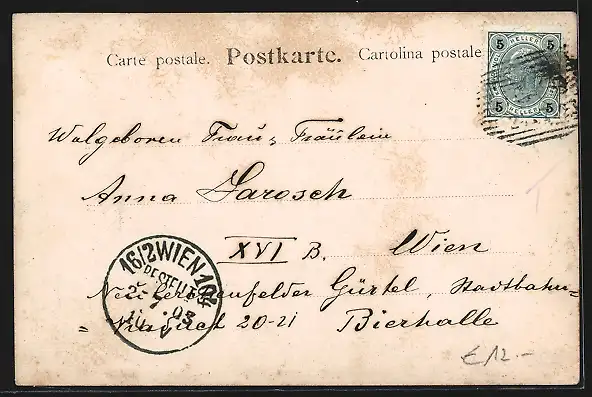 Carte postale. Postkarte. Cartolina postale
5 HELLER 5
5 HELLER 5
Walgeboren Frau, Fräulein
Anna Jarosch
XVI B. Wien
Neulerchenfelder Gürtel, Stadtbahn=
= Viaduct 20-21 Bierhalle
16/2 WIEN 104
BESTELLT
03
€ 12.-